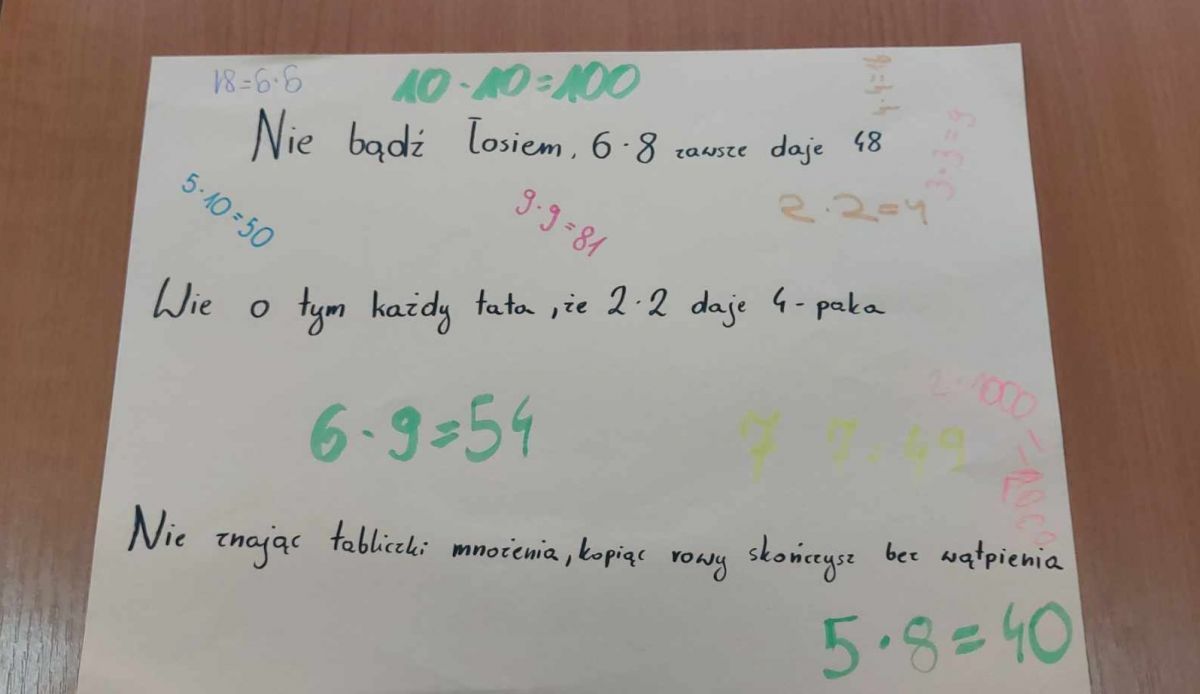 9·9=81
10·10=100
4·4=16
Nie bądź łosiem, 6·8 zawsze daje 48
3·3=9
5·10=50
9·9=81
2·2=4
Wie o tym każdy tata, że 2·2 daje 4-paka
2·1000=2000
6·9=54
7 7=49
Nie znając tabliczki mnożenia, kopiąc rowy skończysz bez wątpienia
5·8=40